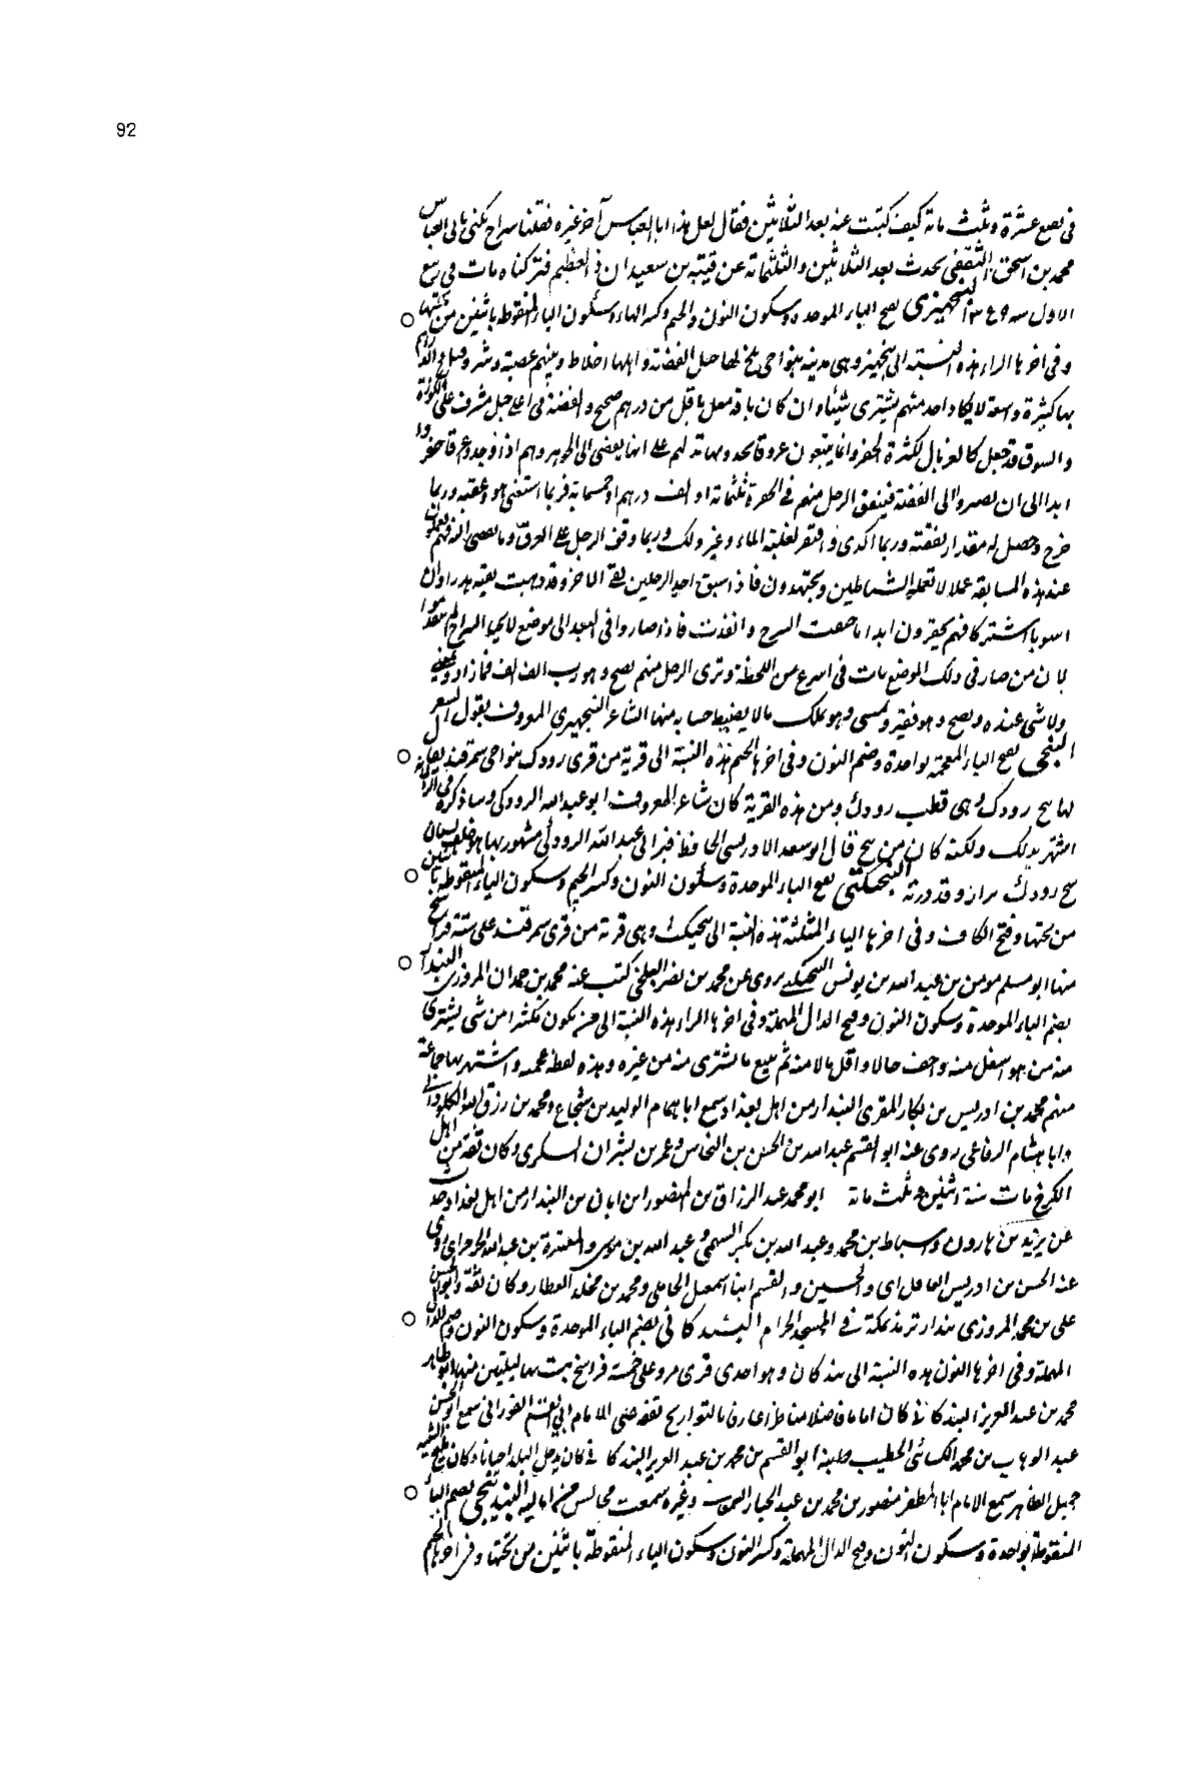 92
في بضع عشرة وثلث مائة كيف كتبت عنه بعد الثلاثين فقال لعل هذا ابا العباس آخر غيره فقلنا سراج يكنى بابي العباس
محمد بن اسحق الثقفي يحدث بعد الثلاثين والثلثمائة عن قتيبة بن سعيد ان ذا لعظيم فتركناه مات في ربيع
الاول سنة البنجهيري بفتح الباء الموحدة وسكون النون والجيم وكسر الهاء وسكون الياء المنقوطة باثنين من تحتها
وفي اخرها الراء هذه النسبة الى بنجهير وهي مدينة بنواحي بلخ بها جبل الفضة واهلها اخلاط وبينهم عصبية وشر وقتل والدراهم
بها كثيرة واسعة لا يكاد احد منهم يشتري شيئا وان كان باقة بقل باقل من درهم صحيح والفضة في اعلى جبل مشرف على البلدة
والسوق قد جعل كالغربال لكثرة الحفر وانما يتبعون عروقا يجدونها تدلهم على انها يفضي الى الجوهر وهم اذا وجدوا عرقا حفروا
ابدا الى ان يصيروا الى الفضة فينفق الرجل منهم في الحفرة ثلثمائة الف درهم او خمسمائة فربما استغنى هو وعقبه وربما
خرج وحصل له مقدار نفقته وربما اكدى وافتقر لغلبة الماء وغير ذلك وربما وقف الرجل على العرق وما يفضي اليه فهم يعملون
عند هذه المسابقة عملا لا تعمله الشياطين ويجتهدون فاذا سبق احد الرجلين بقي الاخر وقد ذهبت نفقته هدرا وان
استويا اشتركا فهم يحفرون ابدا ما حييت السرج واتقدت فاذا صاروا في البعد الى موضع لا يحيى السراج لم يتقدموا
لان من صار في ذلك الموضع مات في اسرع من اللحظة وترى الرجل منهم يصبح وهو رب الف الف فما زاد ويمسي
ولا شيء عنده ويصبح وهو فقير ويمسي وهو يملك ما لا يضبط حسابه منها الشاعر البنجهيري المعروف يقول الشعر
البنجي بفتح الباء المعجمة بواحدة وضم النون وفي اخرها الجيم هذه النسبة الى قرية من قرى رودك بنواحي سمرقند يقال
لها بنج رودك وهي قطب رودك ومن هذه القرية كان شاعر المعروف ابو عبدالله الرودكي وساذكره في الراء
اشتهر بذلك ولكنه كان من بنج قال ابو سعد الادريسي الحافظ قبر ابي عبدالله الرودكي مشهور بها خلف بستان
بنج رودك يزار وقد زرته البنجيكثي بفتح الباء الموحدة وسكون النون وكسر الجيم وسكون الياء المنقوطة باثنين
من تحتها وفتح الكاف وفي اخرها الثاء المثلثة هذه النسبة الى بنجيكث وهي قرية من قرى سمرقند على ستة فراسخ
منها ابو مسلم مومن بن عبد الله بن يونس البنجيكثي يروي عن محمد بن نصر البلخي كتب عنه محمد بن حمدان المروزي البندار
بضم الباء الموحدة وسكون النون وفتح الدال المهملة وفي اخرها الراء هذه النسبة الى من يكون مكثرا من شي يشتري
منه من هو اسفل منه واخف حالا واقل مالا منه ثم يبيع ما يشترى منه من غيره وهذه لفظة عجمية واشتهر بها جماعة
منهم محمد بن ادريس بن بكار المقري البندار من اهل بغداد سمع ابا همام الوليد بن شجاع ومحمد بن رزق الله الكلوذاني
وابا هشام الرفاعي روى عنه ابو القسم عبد الله بن الحسن بن النخاس وعمر بن بشران السكري وكان ثقة من اهل
الكرخ مات سنة اثنين وثلث مائة ابو محمد عبد الرزاق بن منصور بن ابان بن البندار من اهل بغداد حدث
عن يزيد بن هارون واسباط بن محمد وعبد الله بن بكر السهمي وعبد الله بن موسى والمغيرة بن عبد الله الجرجراي روى
عنه الحسن بن ادريس والحسين والقسم ابنا اسمعيل المحاملي ومحمد بن مخلد العطار وكان ثقة وابو الحسن
علي بن محمد المروزي بندار ترمذ بمكة في المسجد الحرام البندكاني بضم الباء الموحدة وسكون النون وضم الدال
المهملة وفي اخرها النون هذه النسبة الى بندكان وهو احدى قرى مرو على خمسة فراسخ بت بها ليلتين منها ابو طاهر
محمد بن عبد العزيز البندكاني كان اماما فاضلا مناظرا عارفا بالتواريخ تفقه على الامام ابي القسم الفوراني سمع ابو الحسن
عبد الوهاب بن محمد الكسائي الخطيب وابو القسم بن محمد بن عبد العزيز البندكاني كان يدخل البلد احيانا وكان مليح الشيبة
جميل الظاهر سمع الامام ابا المظفر منصور بن محمد بن عبد الجبار السمعاني وغيره سمعت مجالس من اماليه البندنيجي بضم الباء
المنقوطة بواحدة وسكون النون وفتح الدال المهملة وكسر النون وسكون الياء المنقوطة باثنين من تحتها وفي اخرها الجيم